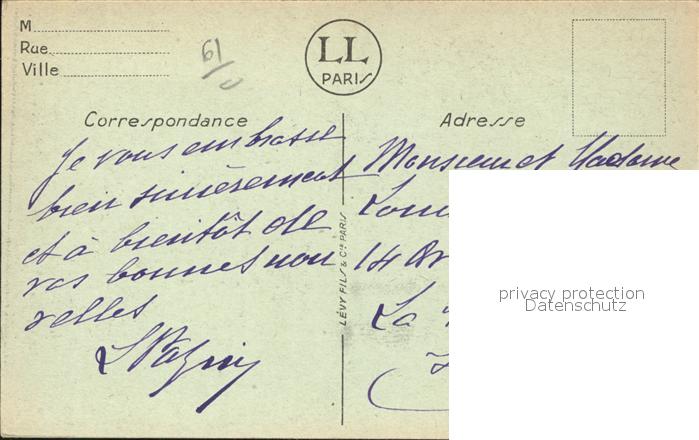 M
Rue
Ville
61/0
LL
PARIS
Correspondance
Je vous embrasse
bien sincèrement
et à bientôt de
vos bonnes nou
velles
Adresse
Monsieur et Madame
14
La
LÉVY FILS & Cie PARIS
privacy protection
Datenschutz